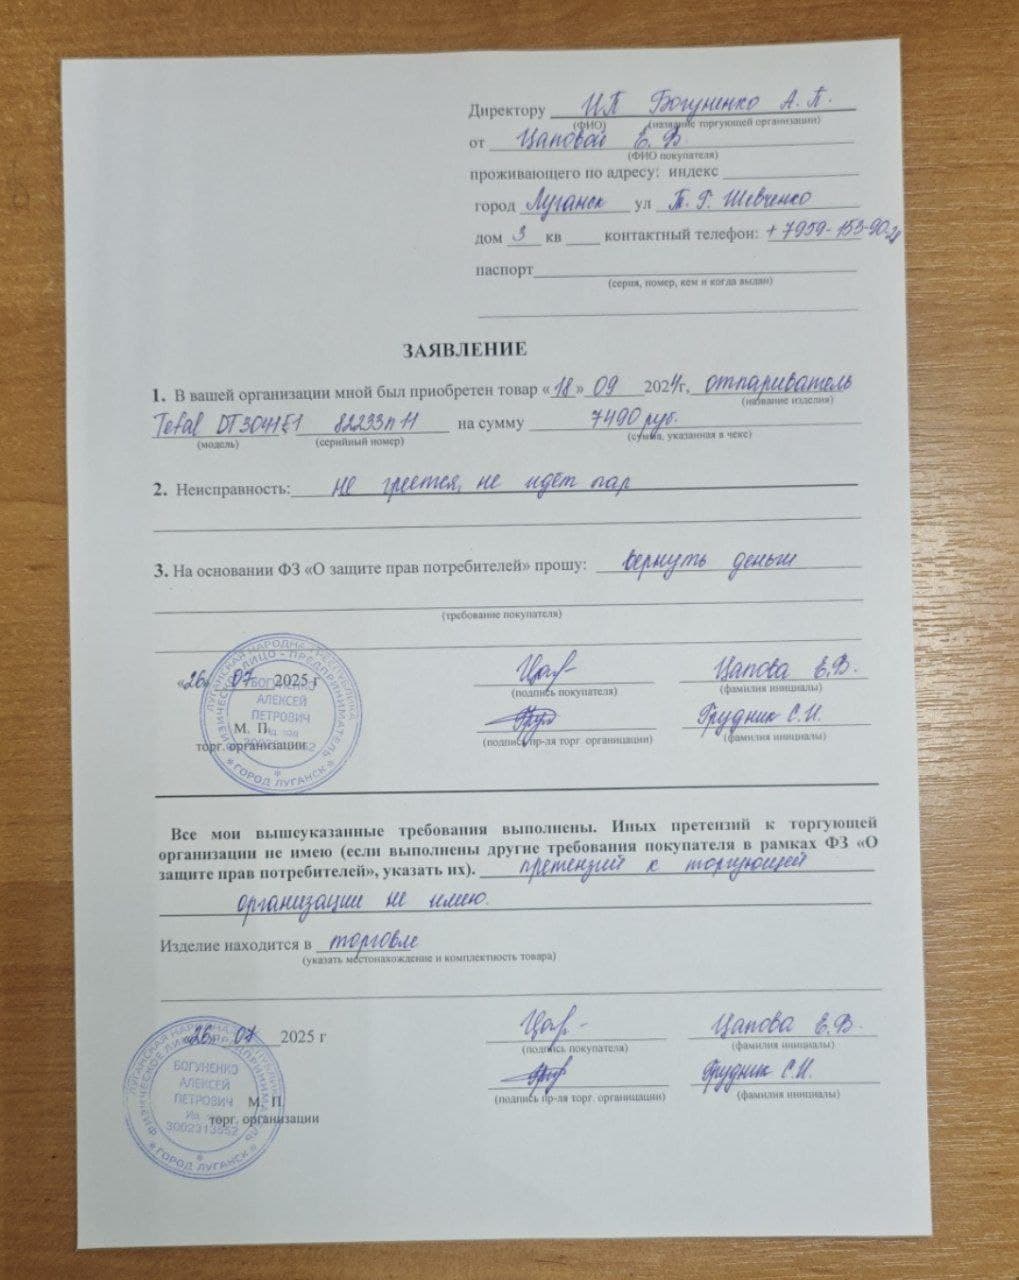 Директору ИП Богуненко А. П.
(ФИО) (название торгующей организации)
от Цаповой Е. В.
(ФИО покупателя)
проживающего по адресу: индекс
город Луганск ул Т. Г. Шевченко
дом 3 кв контактный телефон: +7959-153-90-
паспорт
(серия, номер, кем и когда выдан)
ЗАЯВЛЕНИЕ
1. В вашей организации мной был приобретен товар «18» 09 2024г, отпариватель
(название изделия)
Tefal DT3041E1 82233п11 на сумму 7490 руб.
(модель) (серийный номер) (сумма, указанная в чеке)
2. Неисправность: не греется, не идёт пар
3. На основании ФЗ «О защите прав потребителей» прошу: вернуть деньги
(требование покупателя)
«26» 07 2025 г Цапова Е.В.
(подпись покупателя) (фамилия инициалы)
М. П. Грудник С.И.
торг. организации (подпись пр-ля торг. организации) (фамилия инициалы)
ЛУГАНСКАЯ НАРОДНАЯ РЕСПУБЛИКА
ФИЗИЧЕСКОЕ ЛИЦО - ПРЕДПРИНИМАТЕЛЬ
БОГУНЕНКО
АЛЕКСЕЙ
ПЕТРОВИЧ
Ид. код
ГОРОД ЛУГАНСК
Все мои вышеуказанные требования выполнены. Иных претензий к торгующей
организации не имею (если выполнены другие требования покупателя в рамках ФЗ «О
защите прав потребителей», указать их). претензий к торгующей
организации не имею.
Изделие находится в торговле
(указать местонахождение и комплектность товара)
«26» 07 2025 г Цапова Е.В.
(подпись покупателя) (фамилия инициалы)
М. П. Грудник С.И.
торг. организации (подпись пр-ля торг. организации) (фамилия инициалы)
ЛУГАНСКАЯ НАРОДНАЯ
ФИЗИЧЕСКОЕ ЛИЦО - ПРЕДПРИНИМАТЕЛЬ
БОГУНЕНКО
АЛЕКСЕЙ
ПЕТРОВИЧ
Ид.
3002313552
ГОРОД ЛУГАНСК